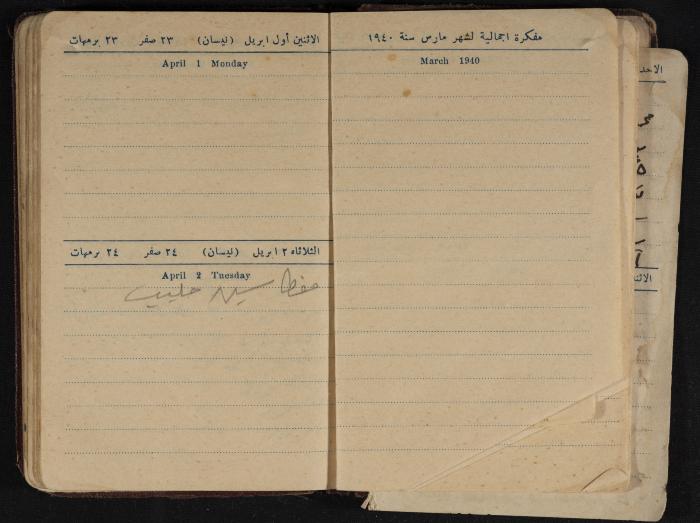 مفكرة اجمالية لشهر مارس سنة ١٩٤٠
March 1940
الاثنين أول ابريل (نيسان) ٢٣ صفر ٢٣ برمهات
April 1 Monday
الثلاثاء ٢ ابريل (نيسان) ٢٤ صفر ٢٤ برمهات
April 2 Tuesday
الاحد